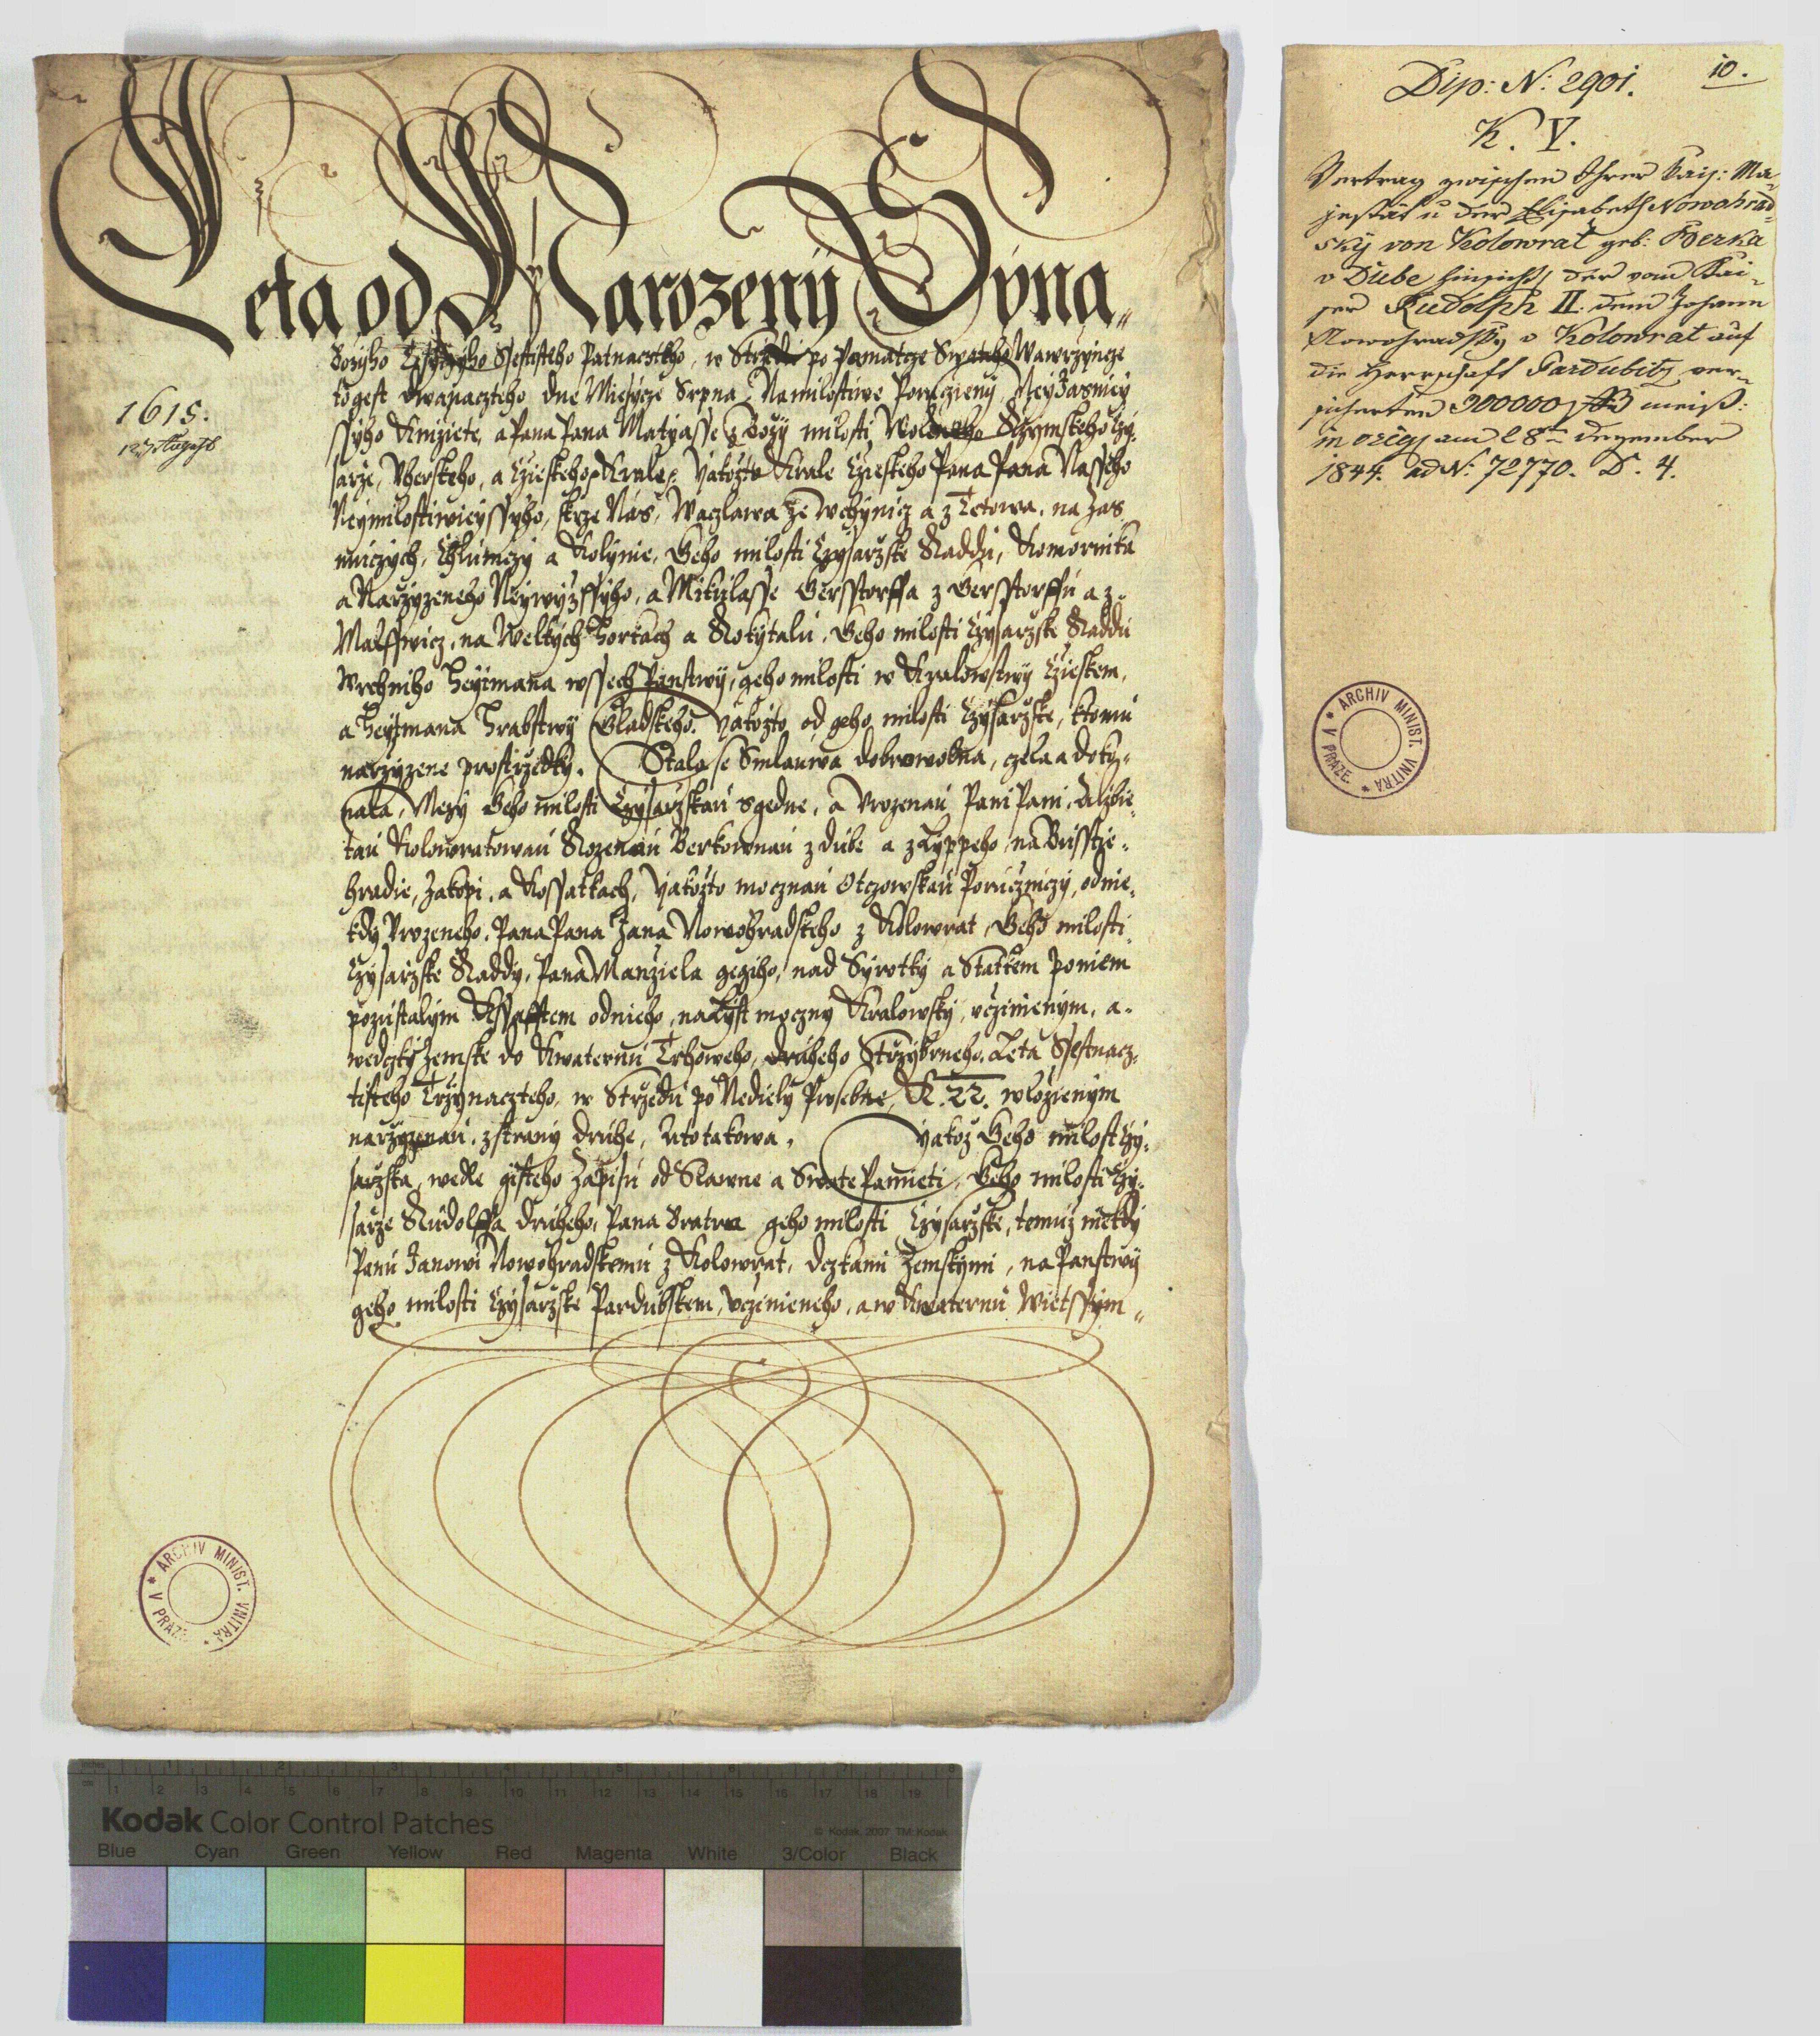 Leta od Narozenij Syna
Božyho Cžtyrzyho Ssestisteho Patnacżteho, w Strzedu po Pamatcze Swateho Wawrzyncze
to gest dwanaczteho dne Miesycze Srpna, Na milostiwe Poruczieny, Neyjasniey
ssyho Knizete, a Pana Pana Matyasse z Boży milosti, Woleneho Rzymskeho Czy
sarze, Vherskeho, a Cżieskeho &c Krale, yakożto Krale Cżieskeho Pana Pana Nasseho
Neymilostiwieyssyho, skrze Nás, Waczlawa ze Wchynicz a z Tetowa, na Zas
muczych, Chlumczy a Kolynie, Geho milosti Czysarzske Raddu, Komornika
a Narzyzeneho Neywyżssyho, a Mikulasse Gersstorffa z Gersstorffu a z
Malsswicz, na Welkych Horkach a Rokytalu, Geho milosti Czysarzske Raddu
Wrchniho Heytmana wssech Panstwij, geho milosti w Kralowstwij Cżieskem,
a Heytmana Hrabstwij Gladskeho, yakożto od geho milosti Czysarzske, ktomu
narzyzene prostrzedky. Stala se Smlauwa dobrowolna, czela a doko
nala, Mezy Geho milosti Czysarzskau s gedne, a Vrozenau Pani Pani Alżbie
tau Kolowratowau Rozenau Berkownau z Dube a z Lyppeho, na Busstie
hradie, Zakopi, a Kossatkach, yakożto mocznau Otczowskau Porucżniczy, odnie
kdy Vrozeneho, Pana Pana Jana Nowohradskeho z Kolowrat, Geho milosti
Czysarzske Raddy, Pana Manżiela gegiho, nad Syrotky a Statkem po niem
pozustalym Kssafftem od nieho, na Lyst moczny Kralowsky, vcżinienym, a
we dczky Zemske do Kwaternu Trhoweho, druheho Strzybrneho, Leta Ssestnacz
tisteho Trzynaczteho, w Strzedu po Nediely Prosebne, K. 22. wlożienym
narzyzenau, z strany druhe, Ato takowa, yakoż Geho milost Czy
sarzska, wedle gisteho Zapisu od Slawne a Swate Pamieti, Geho milosti Czy
sarze Rudolffa druheho, Pana Bratra geho milosti Czysarzske, temuż niekdy
Panu Janowi Nowohradskemu z Kolowrat, dczkami Zemskymi, na Panstwij
geho milosti Czysarzske Pardubskem, vcżinieneho, a w Kwaternu Wietssym
1615.
12. August
ARCHIV MINIST. VNITRA * V PRAZE *
Dip: N: 2901. 10.
K. V.
Vertrag zwischen Ihrer Kais: Ma-
jestät u der Elisabeth Nowohrad-
sky von Kolowrat geb: Berka
v Dube hinsichtl der vom Kai-
ser Rudolph II: dem Johann
Nowohradsky v Kolowrat auf
die Herrschaft Pardubitz ver-
sicherten meiß:
in orig am 28n Dezember
1844. ad N: 72770. D. 4.
ARCHIV MINIST. VNITRA * V PRAZE *
inches 1 2 3 4 5 6 7 8
cm 1 2 3 4 5 6 7 8 9 10 11 12 13 14 15 16 17 18 19
Kodak Color Control Patches
© Kodak, 2007 TM: Kodak
Blue Cyan Green Yellow Red Magenta White 3/Color Black